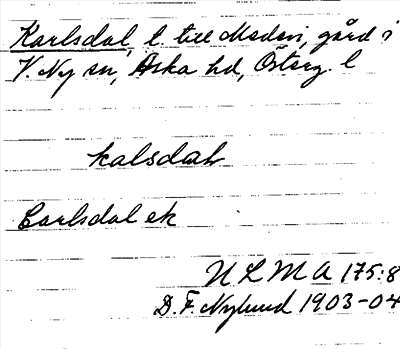 Karlsdal, t. till Medevi, gård i
V. Ny sn, Aska hd, Österg. l
kalsdal
Carlsdal ek
U L M A 175:8
D. F. Nylund 1903-04